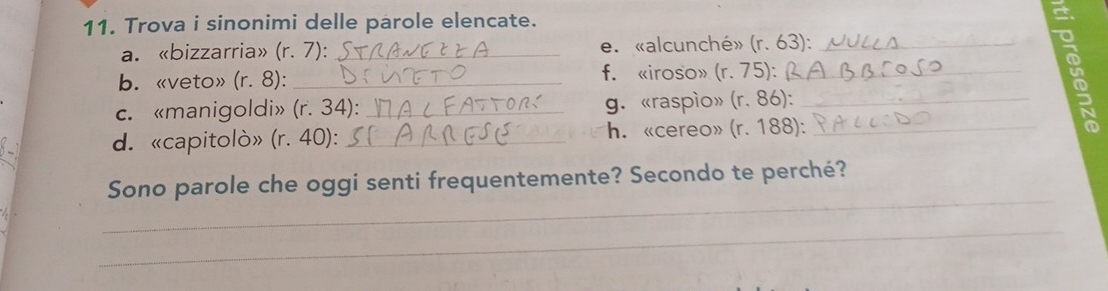 11. Trova i sinonimi delle parole elencate.
a. «bizzarria» (r. 7): STRANEZZA
b. «veto» (r. 8): DIVIETO
c. «manigoldi» (r. 34): MALFATTORI
d. «capitolò» (r. 40): SI ARRESE
e. «alcunché» (r. 63): NULLA
f. «iroso» (r. 75): RABBIOSO
g. «raspìo» (r. 86):
h. «cereo» (r. 188): PALLIDO
Sono parole che oggi senti frequentemente? Secondo te perché?
nti presenze